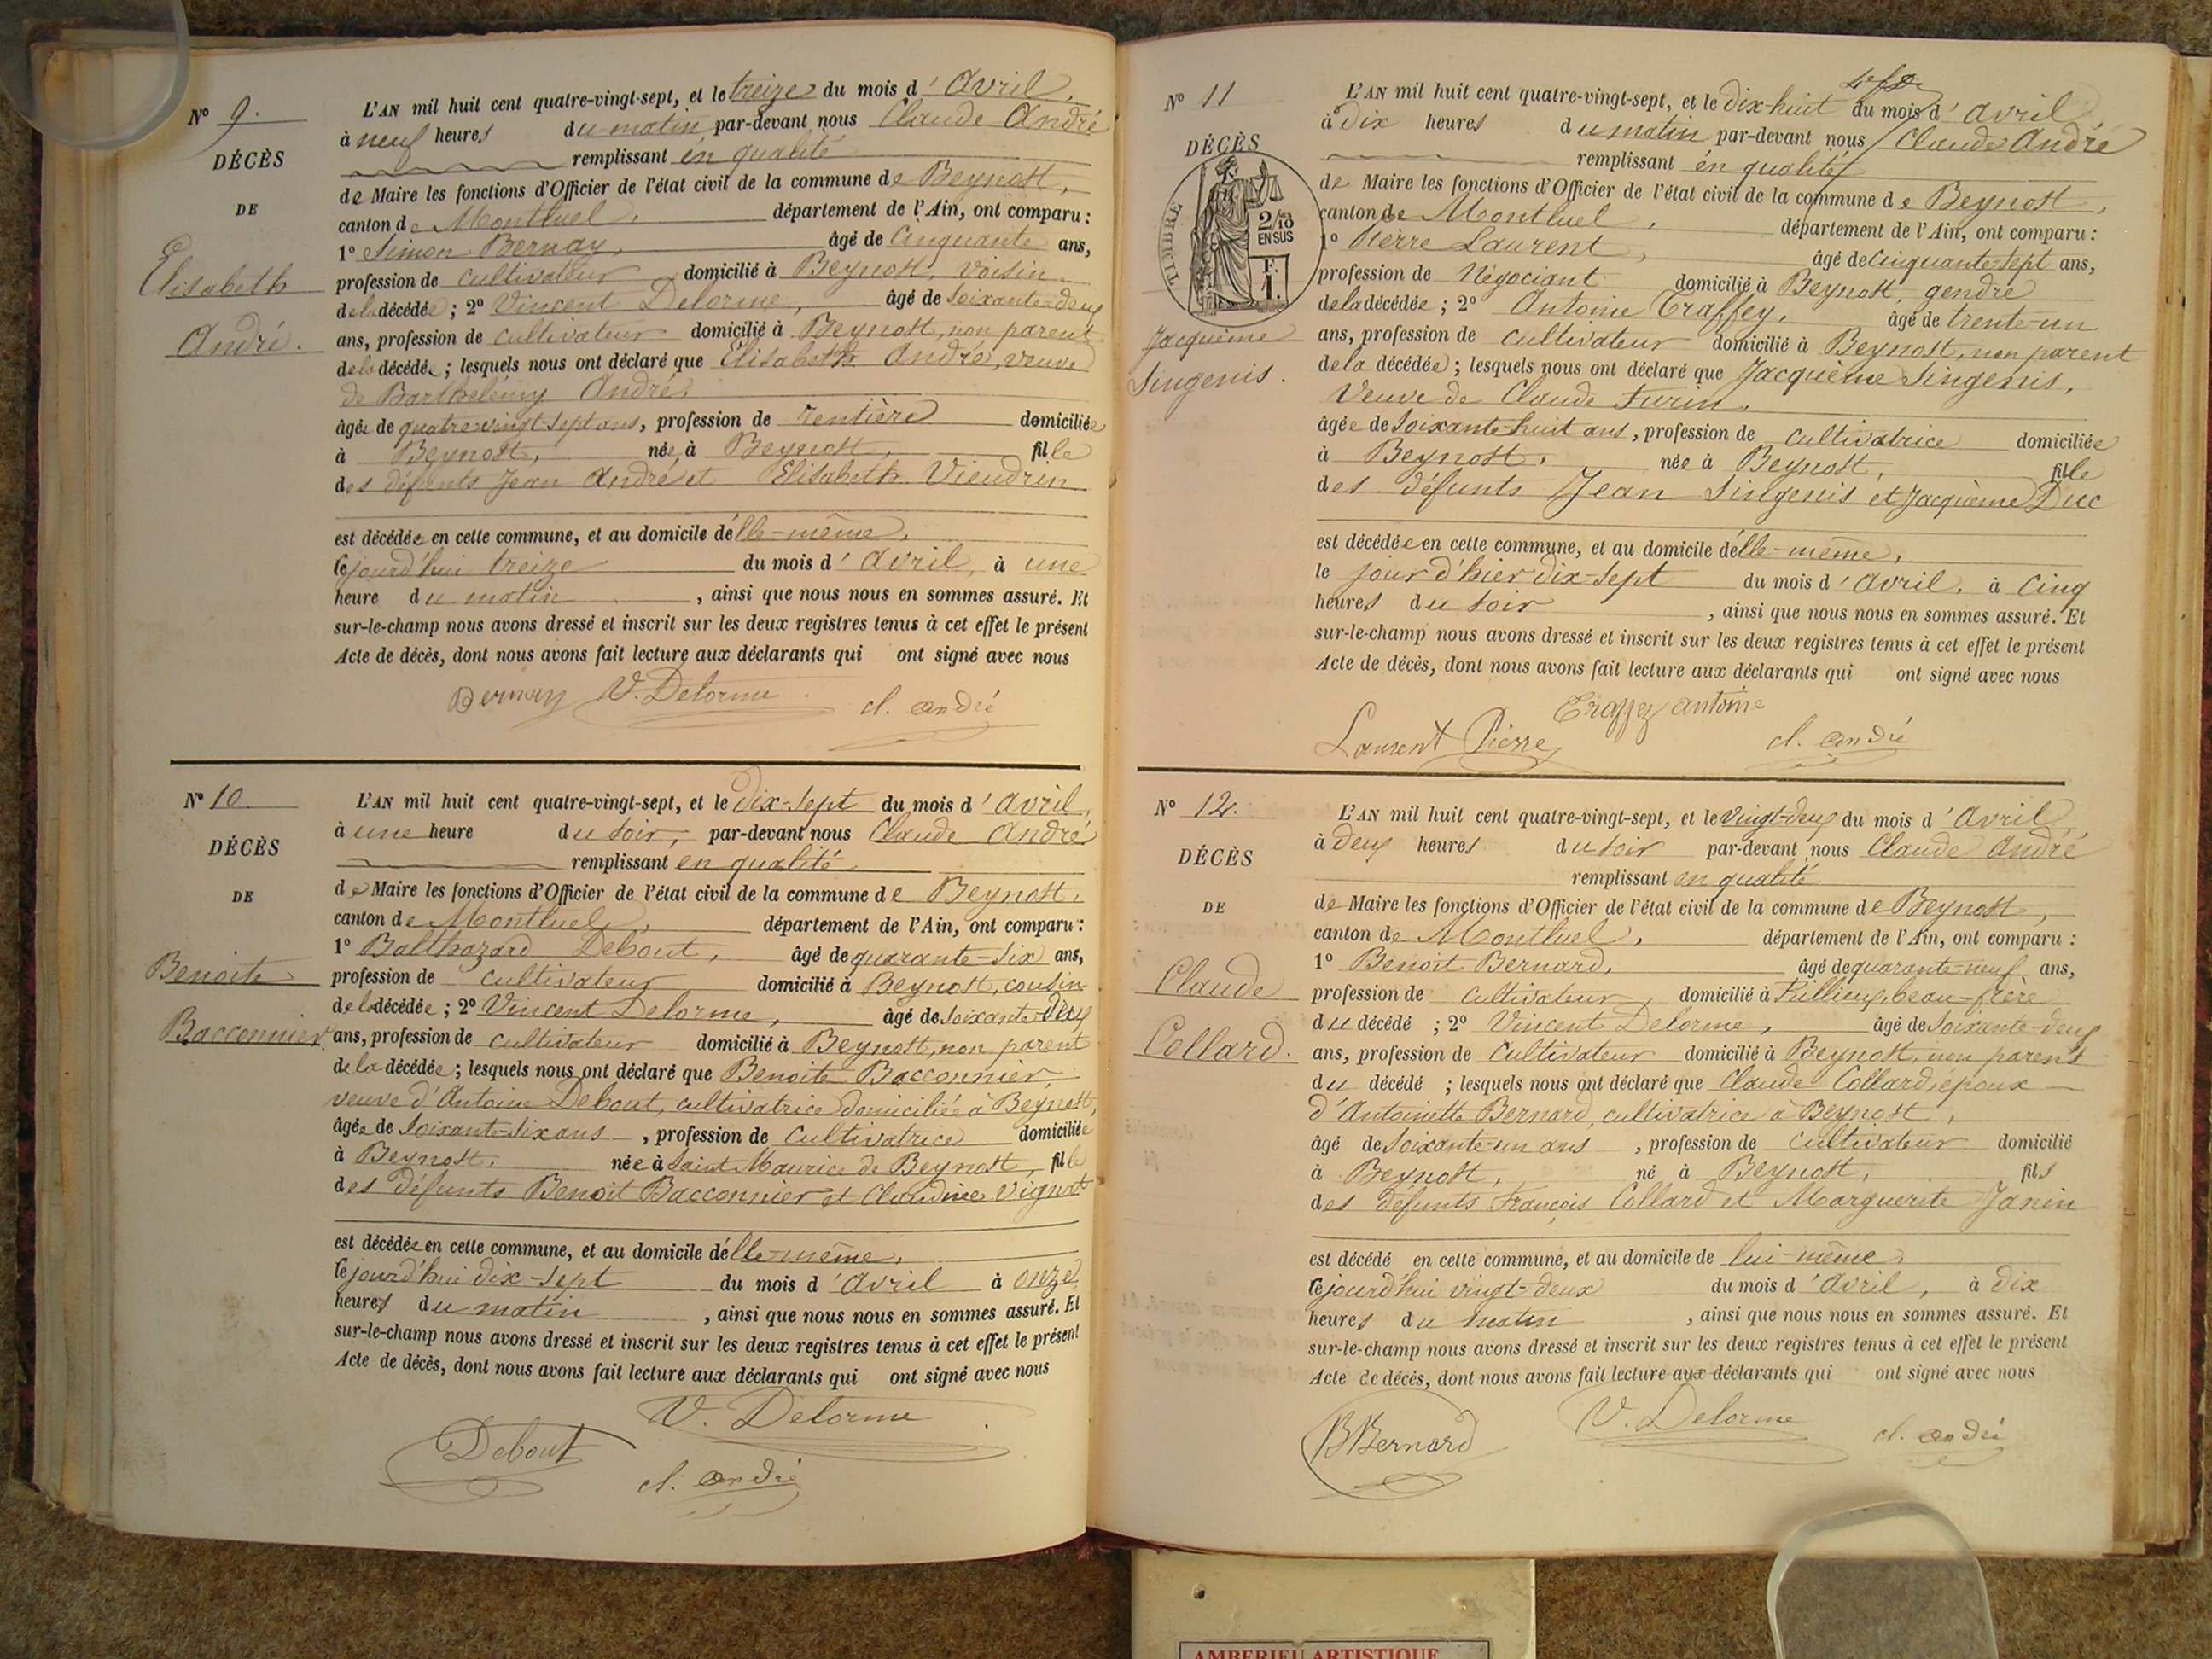 N° 9.
DÉCÈS
DE
Elisabeth
André.
L'AN mil huit cent quatre-vingt-sept, et le treize du mois d'Avril,
à neuf heures du matin par-devant nous Claude André
remplissant en qualité
de Maire les fonctions d'Officier de l'état civil de la commune de Beynost,
canton de Montluel, département de l'Ain, ont comparu :
1° Simon Bernay, âgé de Cinquante ans,
profession de cultivateur domicilié à Beynost, voisin
de la décédée ; 2° Vincent Delorme, âgé de soixante-deux
ans, profession de cultivateur domicilié à Beynost, non parent
de la décédée ; lesquels nous ont déclaré que Elisabeth André, veuve
de Barthelémy André,
âgée de quatre-vingt-sept ans, profession de rentière domiciliée
à Beynost, née à Beynost, fille
des défunts Jean André et Elisabeth Viendrin
est décédée en cette commune, et au domicile d'elle-même,
cejourd'hui treize du mois d'Avril, à une
heure du matin, ainsi que nous nous en sommes assuré. Et
sur-le-champ nous avons dressé et inscrit sur les deux registres tenus à cet effet le présent
Acte de décès, dont nous avons fait lecture aux déclarants qui ont signé avec nous
Bernay V. Delorme cl. andré
N° 10
DÉCÈS
DE
Benoite
Bacconnier
L'AN mil huit cent quatre-vingt-sept, et le dix-sept du mois d'avril,
à une heure du soir, par-devant nous Claude André
remplissant en qualité
de Maire les fonctions d'Officier de l'état civil de la commune de Beynost,
canton de Montluel, département de l'Ain, ont comparu :
1° Balthazard Debout, âgé de quarante-six ans,
profession de cultivateur domicilié à Beynost, cousin
de la décédée ; 2° Vincent Delorme, âgé de soixante-deux
ans, profession de cultivateur domicilié à Beynost, non parent
de la décédée ; lesquels nous ont déclaré que Benoite Bacconnier
veuve d'Antoine Debout, cultivatrice domiciliée à Beynost,
âgée de soixante-six ans, profession de cultivatrice domiciliée
à Beynost, née à Saint Maurice de Beynost, fille
des défunts Benoit Bacconnier et Claudine Vignat
est décédée en cette commune, et au domicile d'elle-même,
cejourd'hui dix-sept du mois d'avril à onze
heures du matin, ainsi que nous nous en sommes assuré. Et
sur-le-champ nous avons dressé et inscrit sur les deux registres tenus à cet effet le présent
Acte de décès, dont nous avons fait lecture aux déclarants qui ont signé avec nous
V. Delorme
Debout
cl. andré
N° 11
DÉCÈS
TIMBRE
2/10 EN SUS
F. 1.
Jacquème
Singenis.
L'AN mil huit cent quatre-vingt-sept, et le dix-huit du mois d'avril,
à dix heures du matin par-devant nous Claude André
remplissant en qualité
de Maire les fonctions d'Officier de l'état civil de la commune de Beynost,
canton de Montluel, département de l'Ain, ont comparu :
1° Pierre Laurent, âgé de Cinquante-sept ans,
profession de Négociant domicilié à Beynost, gendre
de la décédée ; 2° Antoine Traffey, âgé de trente-un
ans, profession de cultivateur domicilié à Beynost, non parent
de la décédée ; lesquels nous ont déclaré que Jacquème Singenis,
Veuve de Claude Furin,
âgée de soixante-huit ans, profession de cultivatrice domiciliée
à Beynost, née à Beynost, fille
des défunts Jean Singenis et Jacquème Duc
est décédée en cette commune, et au domicile d'elle-même,
le jour d'hier dix-sept du mois d'avril, à Cinq
heures du soir, ainsi que nous nous en sommes assuré. Et
sur-le-champ nous avons dressé et inscrit sur les deux registres tenus à cet effet le présent
Acte de décès, dont nous avons fait lecture aux déclarants qui ont signé avec nous
Traffey antoine
Laurent Pierre cl. andré
N° 12.
DÉCÈS
DE
Claude
Collard.
L'AN mil huit cent quatre-vingt-sept, et le vingt-deux du mois d'Avril
à deux heures du soir par-devant nous Claude André
remplissant en qualité
de Maire les fonctions d'Officier de l'état civil de la commune de Beynost,
canton de Montluel, département de l'Ain, ont comparu :
1° Benoit Bernard, âgé de quarante-neuf ans,
profession de cultivateur, domicilié à Rillieux, beau-frère
du décédé ; 2° Vincent Delorme, âgé de soixante-deux
ans, profession de cultivateur domicilié à Beynost, non parent
du décédé ; lesquels nous ont déclaré que Claude Collard, époux
d'Antoinette Bernard, cultivatrice à Beynost,
âgé de soixante-un ans, profession de cultivateur domicilié
à Beynost, né à Beynost, fils
des défunts François Collard et Marguerite Janin
est décédé en cette commune, et au domicile de lui-même,
cejourd'hui vingt-deux du mois d'avril, à dix
heures du matin, ainsi que nous nous en sommes assuré. Et
sur-le-champ nous avons dressé et inscrit sur les deux registres tenus à cet effet le présent
Acte de décès, dont nous avons fait lecture aux déclarants qui ont signé avec nous
B Bernard V. Delorme cl. andré
AMBERIEU ARTISTIQUE